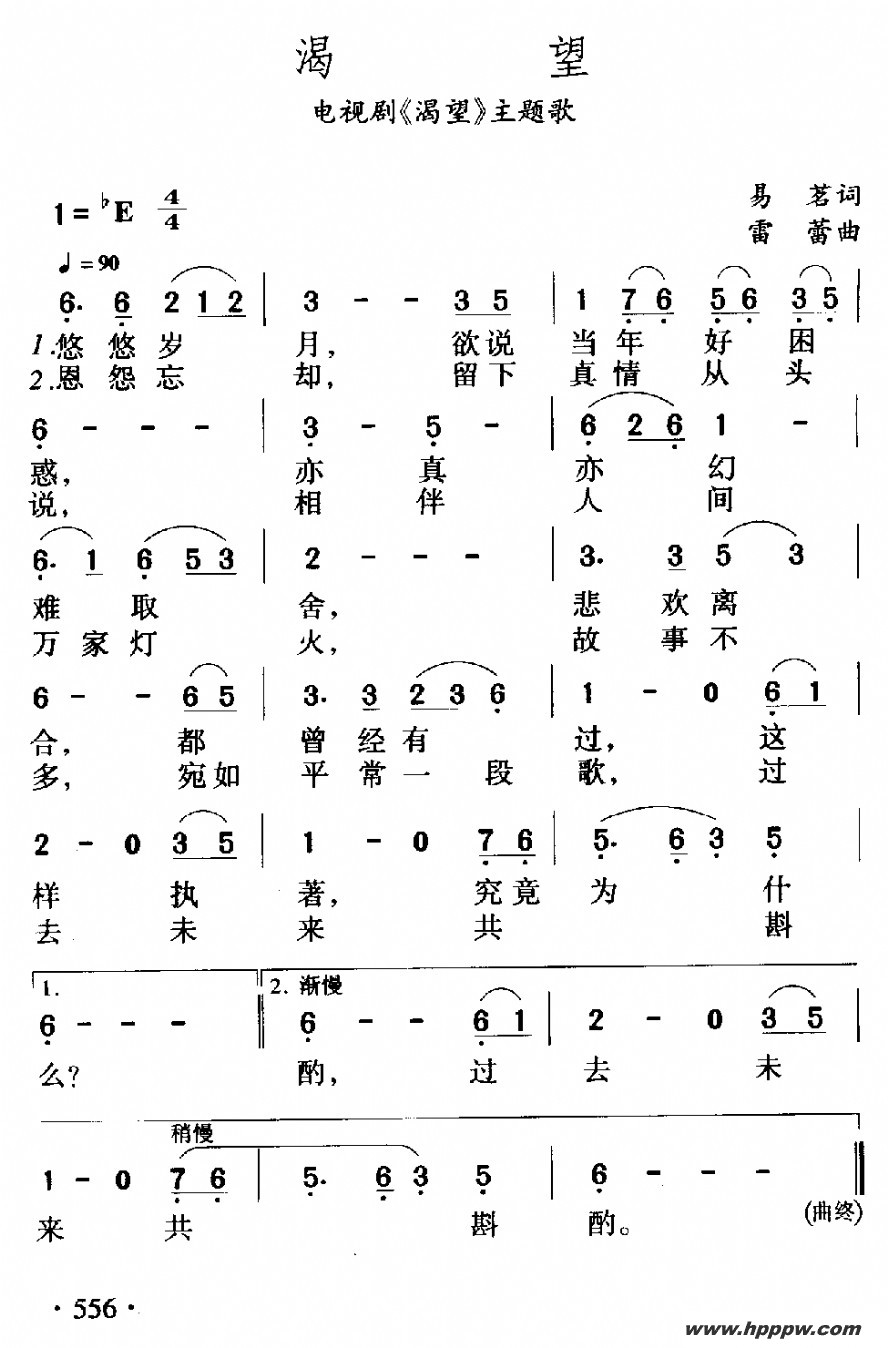 渴 望
电视剧《渴望》主题歌
易 茗词
1=♭E 4/4
雷 蕾曲
♩=90
6̣. 6̣ 2 1 2 | 3 - - 3 5 | 1 7̣ 6̣ 5̣ 6̣ 3̣ 5̣ |
1.悠 悠 岁 月, 欲说 当 年 好 困
2.恩 怨 忘 却, 留下 真 情 从 头
6̣ - - - | 3̣ - 5̣ - | 6̣ 2 6̣ 1 - |
惑, 亦 真 亦 幻
说, 相 伴 人 间
6̣. 1 6̣ 5 3 | 2 - - - | 3. 3 5 3 |
难 取 舍, 悲 欢 离
万 家 灯 火, 故 事 不
6 - - 6 5 | 3. 3 2 3 6̣ | 1 - 0 6̣ 1 |
合, 都 曾 经 有 过, 这
多, 宛如 平 常 一 段 歌, 过
2 - 0 3 5 | 1 - 0 7̣ 6̣ | 5̣. 6̣ 3̣ 5̣
样 执 著, 究竟 为 什
去 未 来 共 斟
1. 2. 渐慢
6̣ - - - ‖ 6̣ - - 6̣ 1 | 2 - 0 3 5 |
么? 酌, 过 去 未
稍慢
1 - 0 7̣ 6̣ | 5̣. 6̣ 3̣ 5̣ | 6̣ - - - ‖
来 共 斟 酌。 (曲终)
· 556 ·
www.hpppw.com